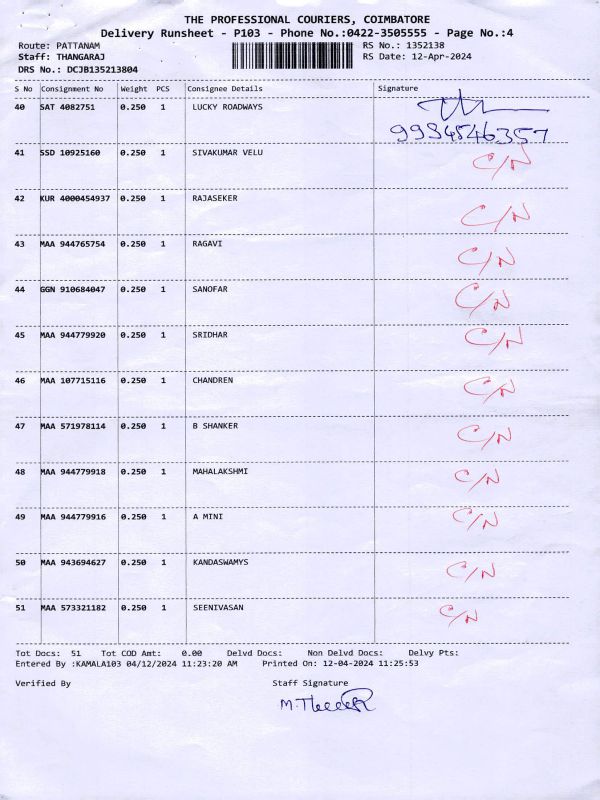 THE PROFESSIONAL COURIERS, COIMBATORE
Delivery Runsheet - P103 - Phone No.:0422-3505555 - Page No.:4
Route: PATTANAM RS No.: 1352138
Staff: THANGARAJ RS Date: 12-Apr-2024
DRS No.: DCJB135213804
S No Consignment No Weight PCS Consignee Details Signature
40 SAT 4082751 0.250 1 LUCKY ROADWAYS
9994546357
41 SSD 10925160 0.250 1 SIVAKUMAR VELU C/N
42 KUR 4000454937 0.250 1 RAJASEKER C/N
43 MAA 944765754 0.250 1 RAGAVI C/N
44 GGN 910684047 0.250 1 SANOFAR C/N
45 MAA 944779920 0.250 1 SRIDHAR C/N
46 MAA 107715116 0.250 1 CHANDREN C/N
47 MAA 571978114 0.250 1 B SHANKER C/N
48 MAA 944779918 0.250 1 MAHALAKSHMI C/N
49 MAA 944779916 0.250 1 A MINI C/N
50 MAA 943694627 0.250 1 KANDASWAMYS C/N
51 MAA 573321182 0.250 1 SEENIVASAN C/N
Tot Docs: 51 Tot COD Amt: 0.00 Delvd Docs: Non Delvd Docs: Delvy Pts:
Entered By :KAMALA103 04/12/2024 11:23:20 AM Printed On: 12-04-2024 11:25:53
Verified By Staff Signature